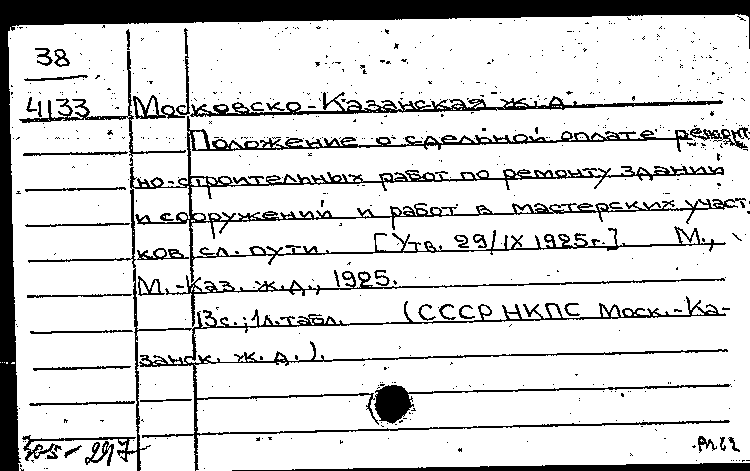 38
4133 Московско-Казанская ж.д.
Положение о сдельной оплате ремонт
но-строительных работ по ремонту зданий
и сооружений и работ в мастерских участ
ков сл. пути. [Утв. 29/IX 1925г.]. М.,
М.-Каз. ж.д., 1925.
13с.; 1л.табл. (СССР НКПС Моск.-Ка-
занск. ж.д.).
305-297